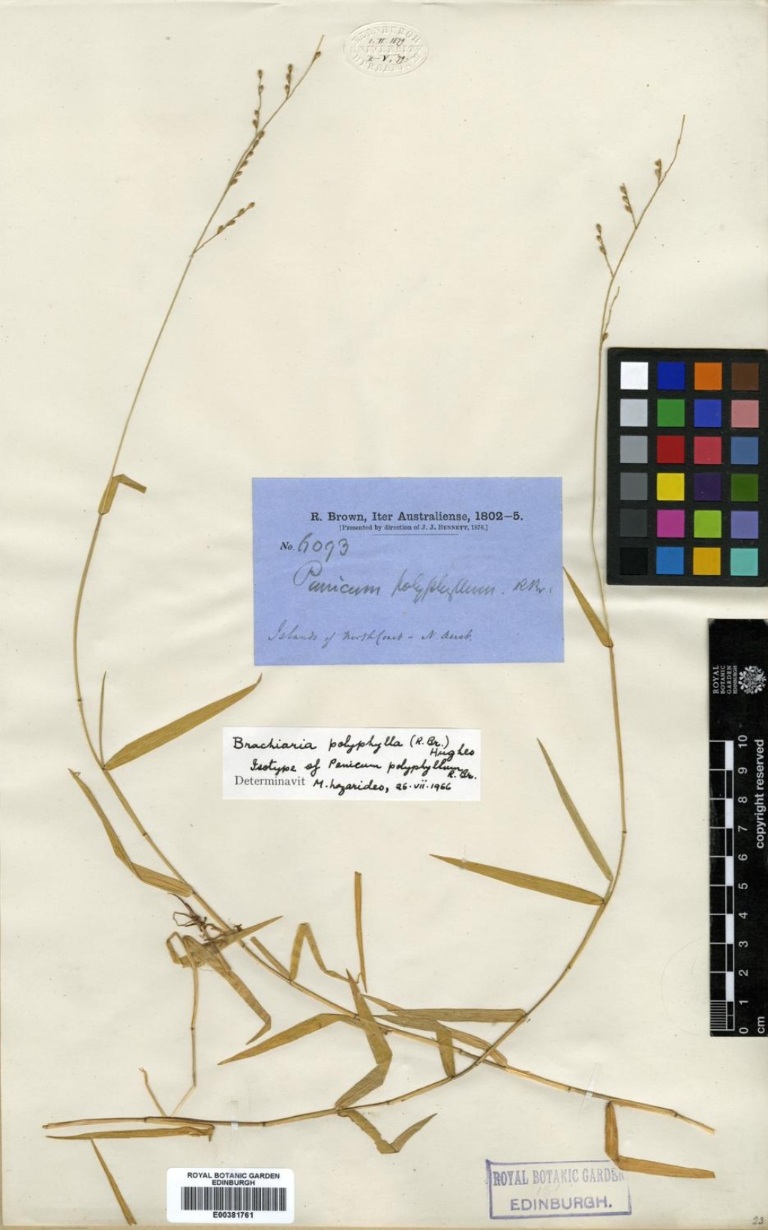 EDINBURGH
UNIVERSITY
HERBARIUM
R. Brown, Iter Australiense, 1802–5.
[Presented by direction of J. J. BENNETT, 1876.]
No. 6093
Panicum polyphyllum. R.Br.
Islands of North Coast – N. Aust.
Brachiaria polyphylla (R. Br.)
Hughes
Isotype of Panicum polyphyllum
R. Br.
Determinavit M. Lazarides, 26.vii.1966
ROYAL
BOTANIC
GARDEN
EDINBURGH
0 1 2 3 4 5 6 7 8 9 10
cm
copyright reserved
ROYAL BOTANIC GARDEN
EDINBURGH
E00381761
ROYAL BOTANIC GARDEN
EDINBURGH.